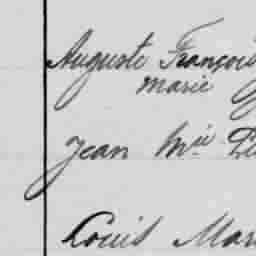 Auguste François
Marie
Jean Mie
Louis Mar